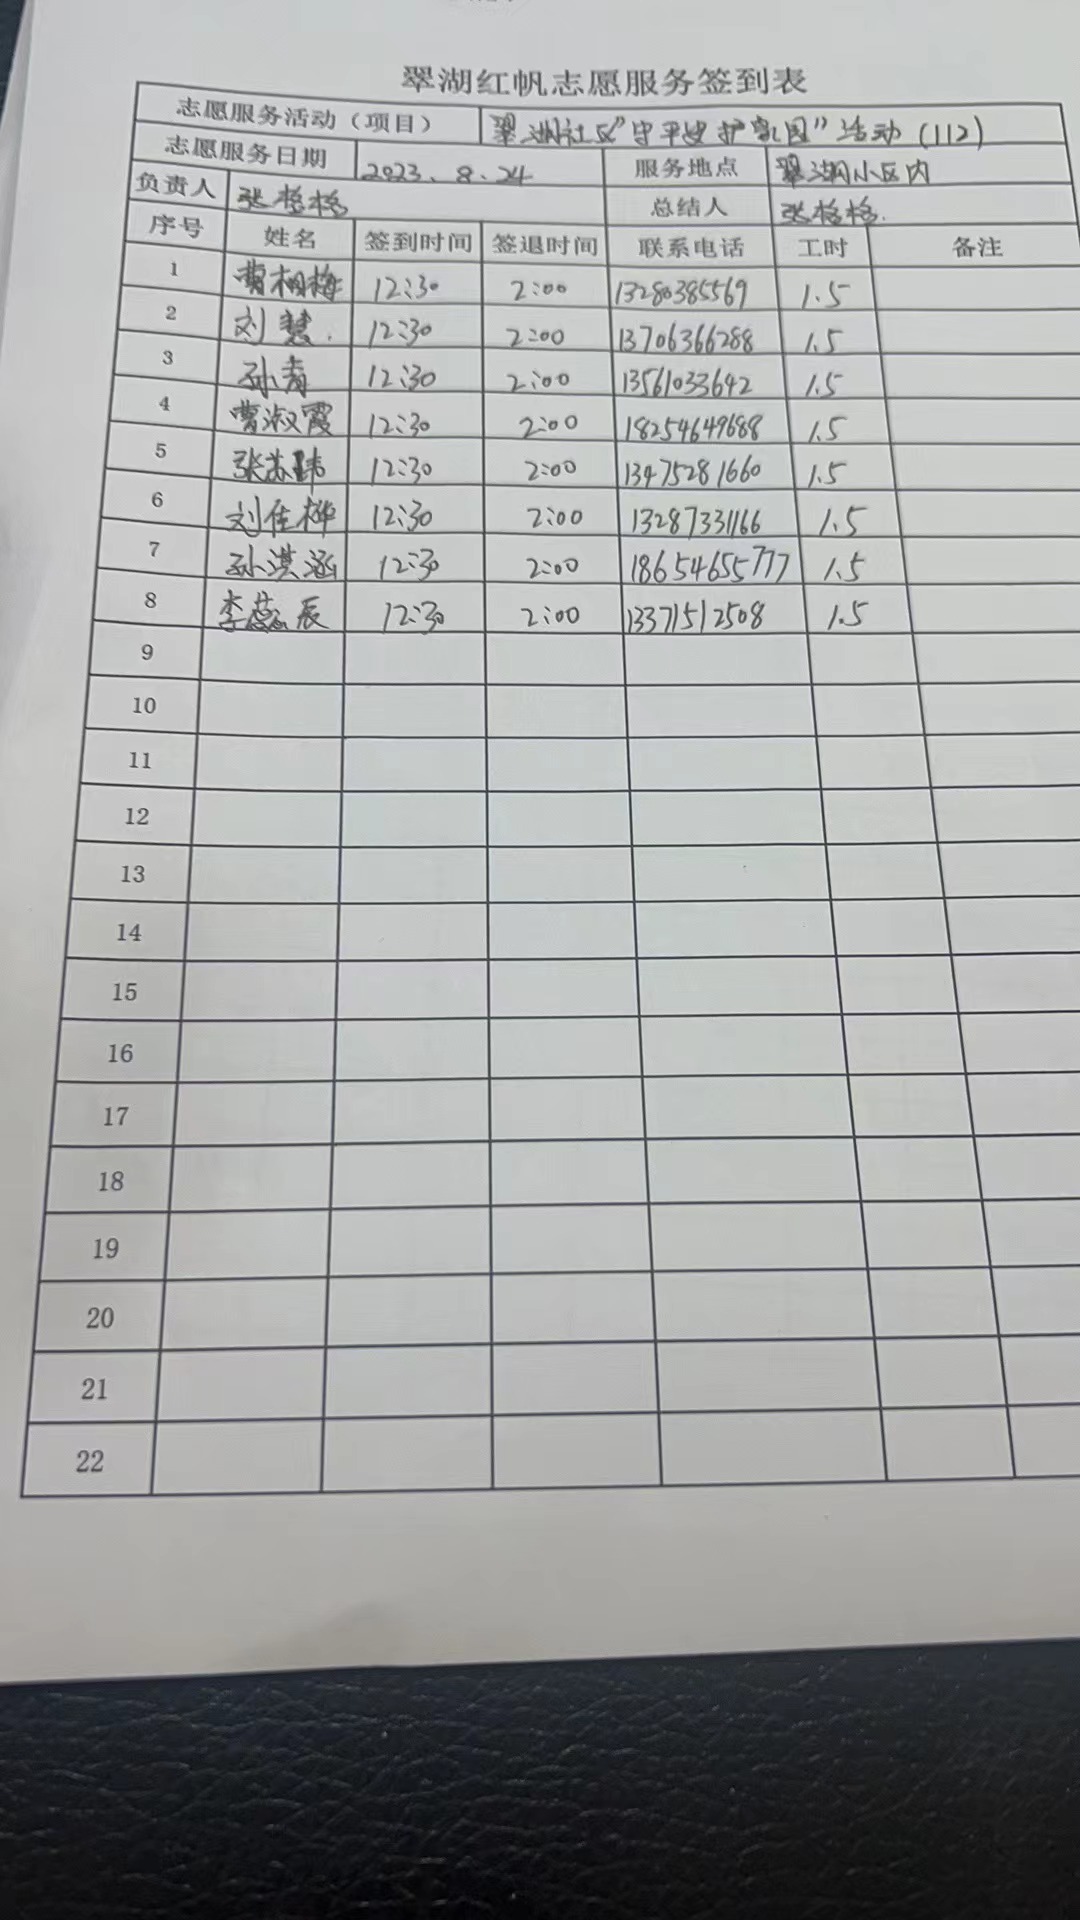 翠湖红帆志愿服务签到表
志愿服务活动（项目） 翠湖社区“守平安护家园”活动（112）
志愿服务日期 2023.8.24 服务地点 翠湖小区内
负责人 张格格 总结人 张格格.
序号 姓名 签到时间 签退时间 联系电话 工时 备注
1 曹相梅 12:30 2:00 13280385569 1.5
2 刘慧. 12:30 2:00 13706366288 1.5
3 孙青 12:30 2:00 13561033642 1.5
4 曹淑霞 12:30 2:00 18254649688 1.5
5 张苏玮 12:30 2:00 13475281660 1.5
6 刘佳桦 12:30 2:00 13287331166 1.5
7 孙淇涵 12:30 2:00 18654655777 1.5
8 李蕊辰 12:30 2:00 13371512508 1.5
9
10
11
12
13
14
15
16
17
18
19
20
21
22